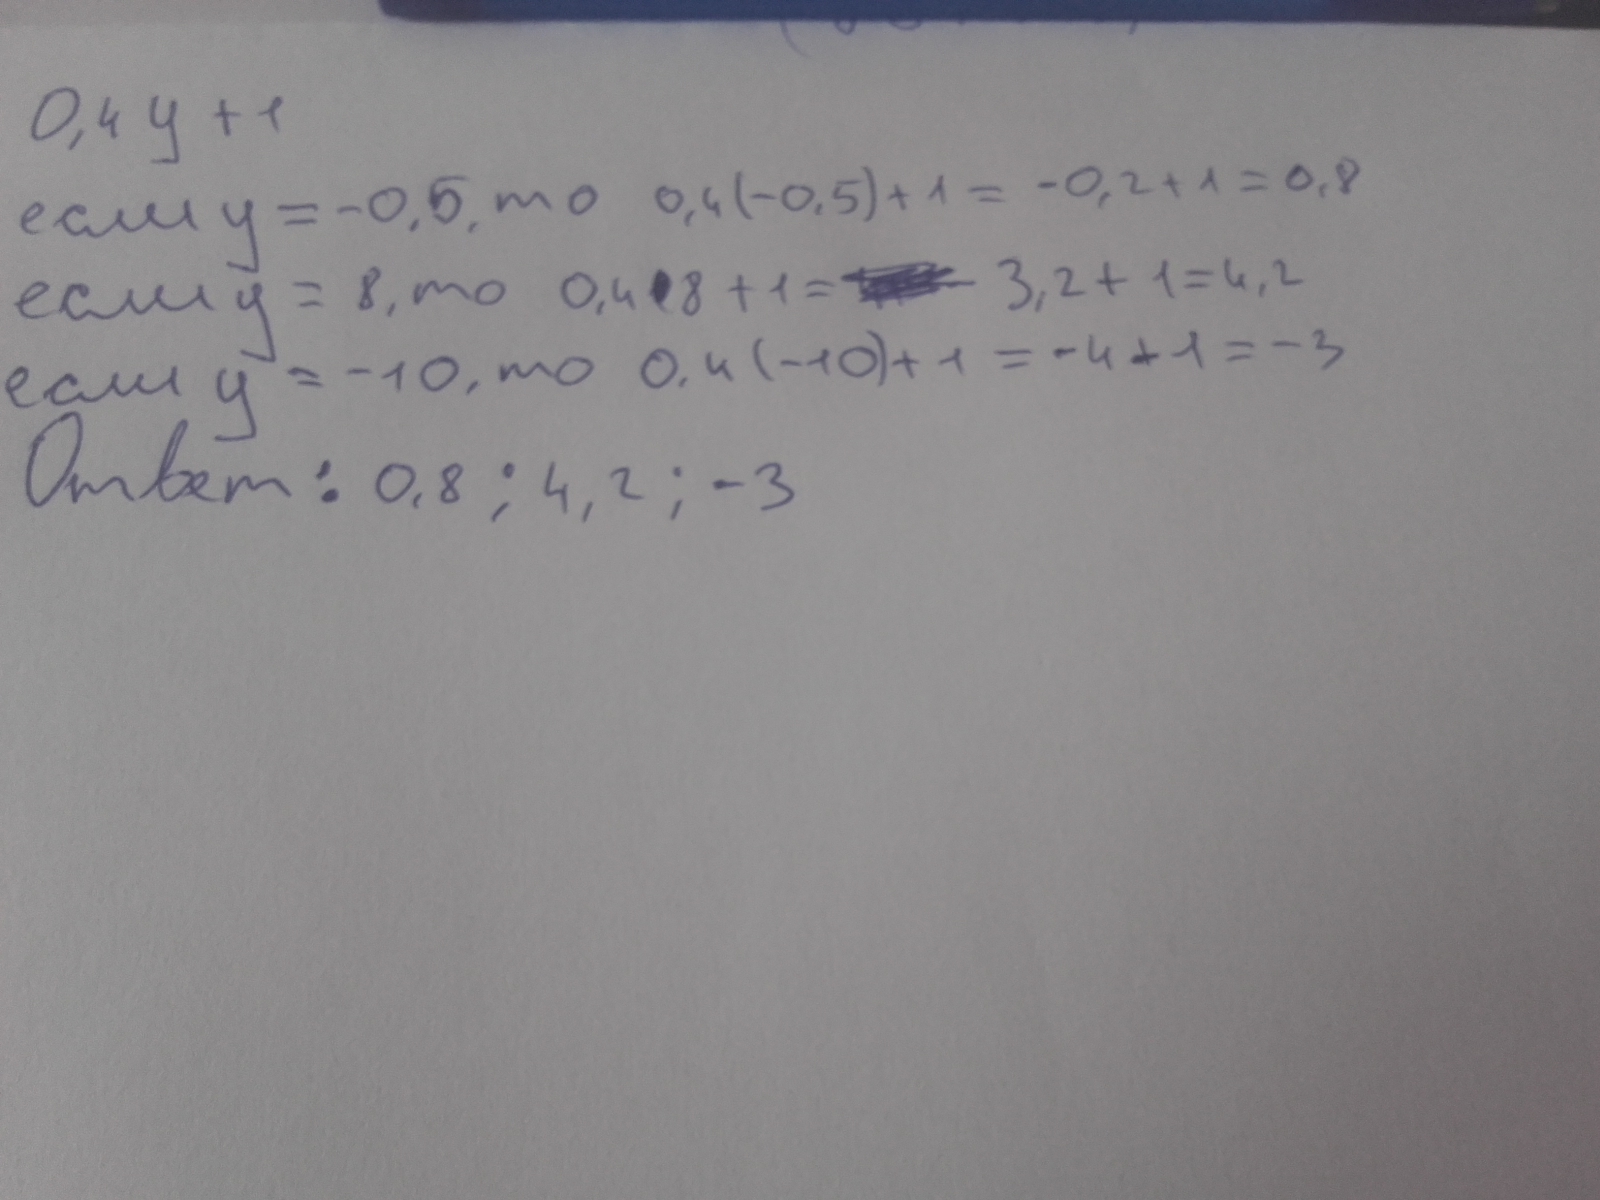 0,4 y + 1
если y = -0,5, то 0,4(-0,5)+1 = -0,2+1=0,8
если y = 8, то 0,4•8 + 1 = 3,2+ 1=4,2
если y = -10, то 0,4(-10)+1 = -4+1=-3
Ответ: 0,8 ; 4,2 ; -3